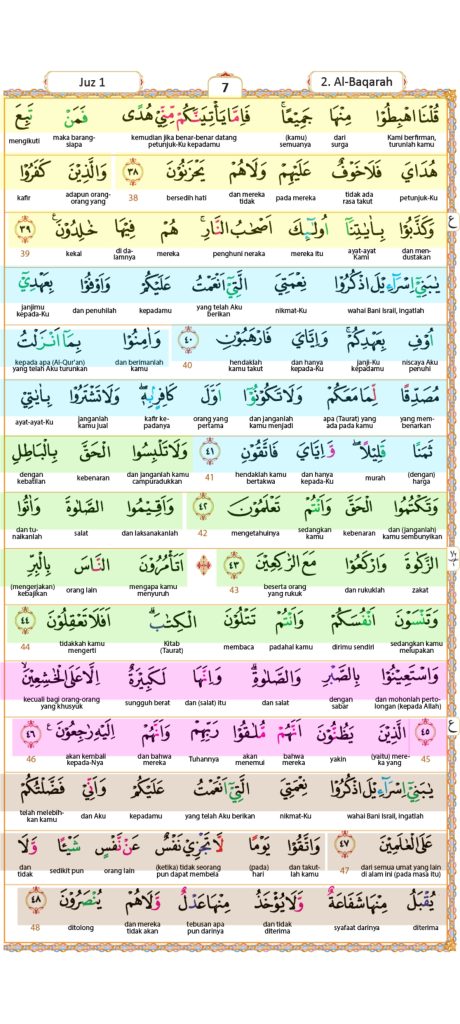 Juz 1
7
2. Al-Baqarah
قُلْنَا اهْبِطُوْا مِنْهَا جَمِيْعًا ۚ فَاِمَّا يَأْتِيَنَّكُمْ مِّنِّيْ هُدًى فَمَنْ تَبِعَ
Kami berfirman, turunlah kamu dari surga (kamu) semuanya kemudian jika benar-benar datang petunjuk-Ku kepadamu maka barang-siapa mengikuti
هُدَايَ فَلَا خَوْفٌ عَلَيْهِمْ وَلَا هُمْ يَحْزَنُوْنَ ٣٨ وَالَّذِيْنَ كَفَرُوْا
petunjuk-Ku tidak ada rasa takut pada mereka dan mereka tidak bersedih hati 38 adapun orang-orang yang kafir
وَكَذَّبُوْا بِاٰيٰتِنَآ اُولٰۤىِٕكَ اَصْحٰبُ النَّارِ ۚ هُمْ فِيْهَا خٰلِدُوْنَ ٣٩ ع
dan men-dustakan ayat-ayat Kami mereka itu penghuni neraka mereka di da-lamnya kekal 39
يٰبَنِيْٓ اِسْرَاۤءِيْلَ اذْكُرُوْا نِعْمَتِيَ الَّتِيْٓ اَنْعَمْتُ عَلَيْكُمْ وَاَوْفُوْا بِعَهْدِيْٓ
wahai Bani Israil, ingatlah nikmat-Ku yang telah Aku berikan kepadamu dan penuhilah janjimu kepada-Ku
اُوْفِ بِعَهْدِكُمْ ۚ وَاِيَّايَ فَارْهَبُوْنِ ٤٠ وَاٰمِنُوْا بِمَآ اَنْزَلْتُ
niscaya Aku penuhi janji-Ku kepadamu dan hanya kepada-Ku hendaklah kamu takut 40 dan berimanlah kamu kepada apa (Al-Qur'an) yang telah Aku turunkan
مُصَدِّقًا لِّمَا مَعَكُمْ وَلَا تَكُوْنُوْٓا اَوَّلَ كَافِرٍۢ بِهٖ ۖ وَلَا تَشْتَرُوْا بِاٰيٰتِيْ
yang mem-benarkan apa (Taurat) yang ada pada kamu dan janganlah kamu menjadi orang yang pertama kafir ke-padanya janganlah kamu jual ayat-ayat-Ku
ثَمَنًا قَلِيْلًا ۖ وَّاِيَّايَ فَاتَّقُوْنِ ٤١ وَلَا تَلْبِسُوا الْحَقَّ بِالْبَاطِلِ
(dengan) harga murah dan hanya kepada-Ku hendaklah kamu bertakwa 41 dan janganlah kamu campuradukkan kebenaran dengan kebatilan
وَتَكْتُمُوا الْحَقَّ وَاَنْتُمْ تَعْلَمُوْنَ ٤٢ وَاَقِيْمُوا الصَّلٰوةَ وَاٰتُوا
dan (janganlah) kamu sembunyikan kebenaran sedangkan kamu mengetahuinya 42 dan laksanakanlah salat dan tu-naikanlah
الزَّكٰوةَ وَارْكَعُوْا مَعَ الرّٰكِعِيْنَ ٤٣ اَتَأْمُرُوْنَ النَّاسَ بِالْبِرِّ
zakat dan rukuklah beserta orang yang rukuk 43 mengapa kamu menyuruh orang lain (mengerjakan) kebajikan
وَتَنْسَوْنَ اَنْفُسَكُمْ وَاَنْتُمْ تَتْلُوْنَ الْكِتٰبَ ۗ اَفَلَا تَعْقِلُوْنَ ٤٤
sedangkan kamu melupakan dirimu sendiri padahal kamu membaca Kitab (Taurat) tidakkah kamu mengerti 44
وَاسْتَعِيْنُوْا بِالصَّبْرِ وَالصَّلٰوةِ ۗ وَاِنَّهَا لَكَبِيْرَةٌ اِلَّا عَلَى الْخٰشِعِيْنَ ۙ
dan mohonlah perto-longan (kepada Allah) dengan sabar dan salat dan (salat) itu sungguh berat kecuali bagi orang-orang yang khusyuk
٤٥ الَّذِيْنَ يَظُنُّوْنَ اَنَّهُمْ مُّلٰقُوْا رَبِّهِمْ وَاَنَّهُمْ اِلَيْهِ رٰجِعُوْنَ ٤٦ ع
45 (yaitu) mere-ka yang yakin bahwa mereka akan menemui Tuhannya dan bahwa mereka akan kembali kepada-Nya 46
يٰبَنِيْٓ اِسْرَاۤءِيْلَ اذْكُرُوْا نِعْمَتِيَ الَّتِيْٓ اَنْعَمْتُ عَلَيْكُمْ وَاَنِّيْ فَضَّلْتُكُمْ
wahai Bani Israil, ingatlah nikmat-Ku yang telah Aku berikan kepadamu dan Aku telah melebih-kan kamu
عَلَى الْعٰلَمِيْنَ ٤٧ وَاتَّقُوْا يَوْمًا لَّا تَجْزِيْ نَفْسٌ عَنْ نَّفْسٍ شَيْـًٔا وَّلَا
dari semua umat yang lain di alam ini (pada masa itu) 47 dan takut-lah kamu (pada) hari (ketika) tidak seorang pun dapat membela orang lain sedikit pun dan tidak
يُقْبَلُ مِنْهَا شَفَاعَةٌ وَّلَا يُؤْخَذُ مِنْهَا عَدْلٌ وَّلَا هُمْ يُنْصَرُوْنَ ٤٨
diterima syafaat darinya dan tidak diterima tebusan apa pun darinya dan mereka tidak akan ditolong 48